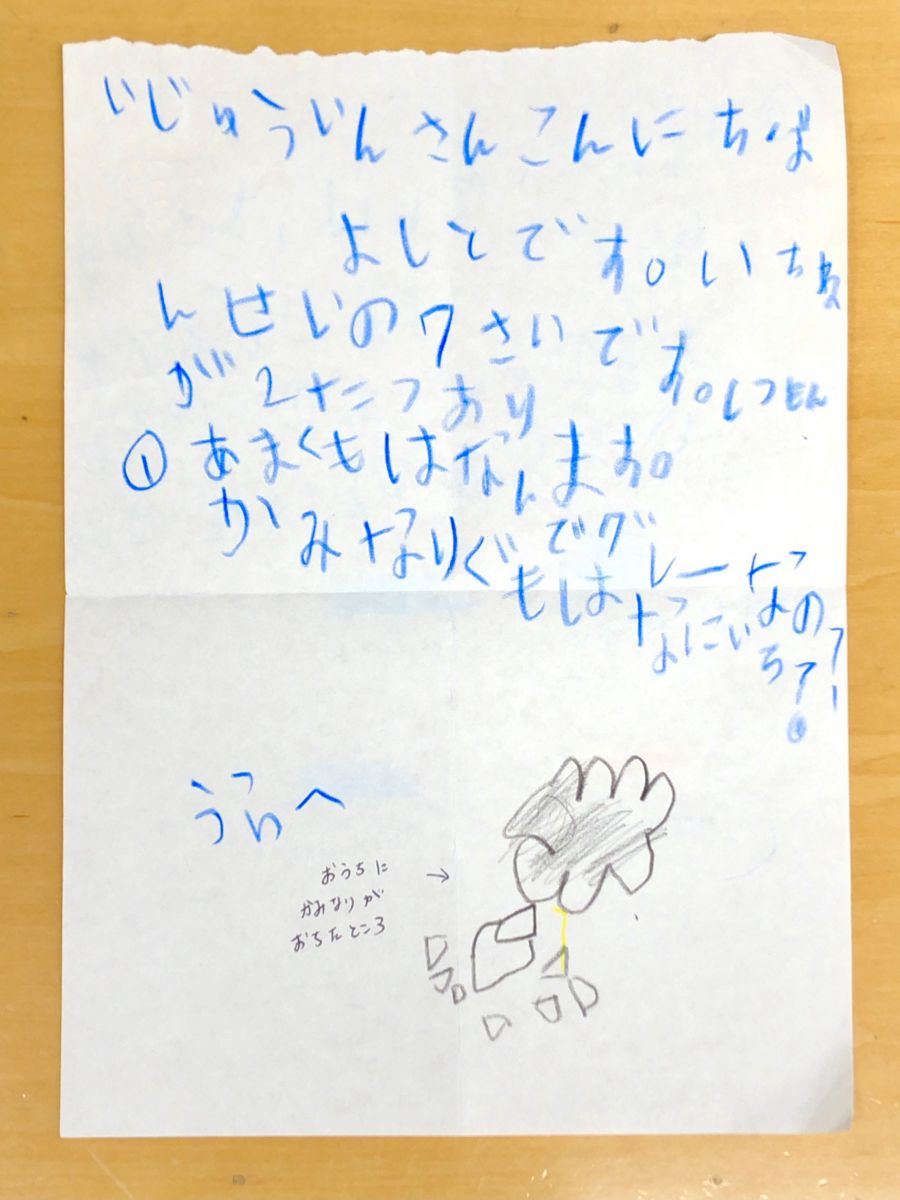 いじゅういんさんこんにちは
よしとです。いちね
んせいの7さいです。しつもん
が2たつあります。
①あまくもはなんでグレーなの?
かみなりぐもはなにいろ?
うらへ
おうちに →
かみなりが
おちたところ